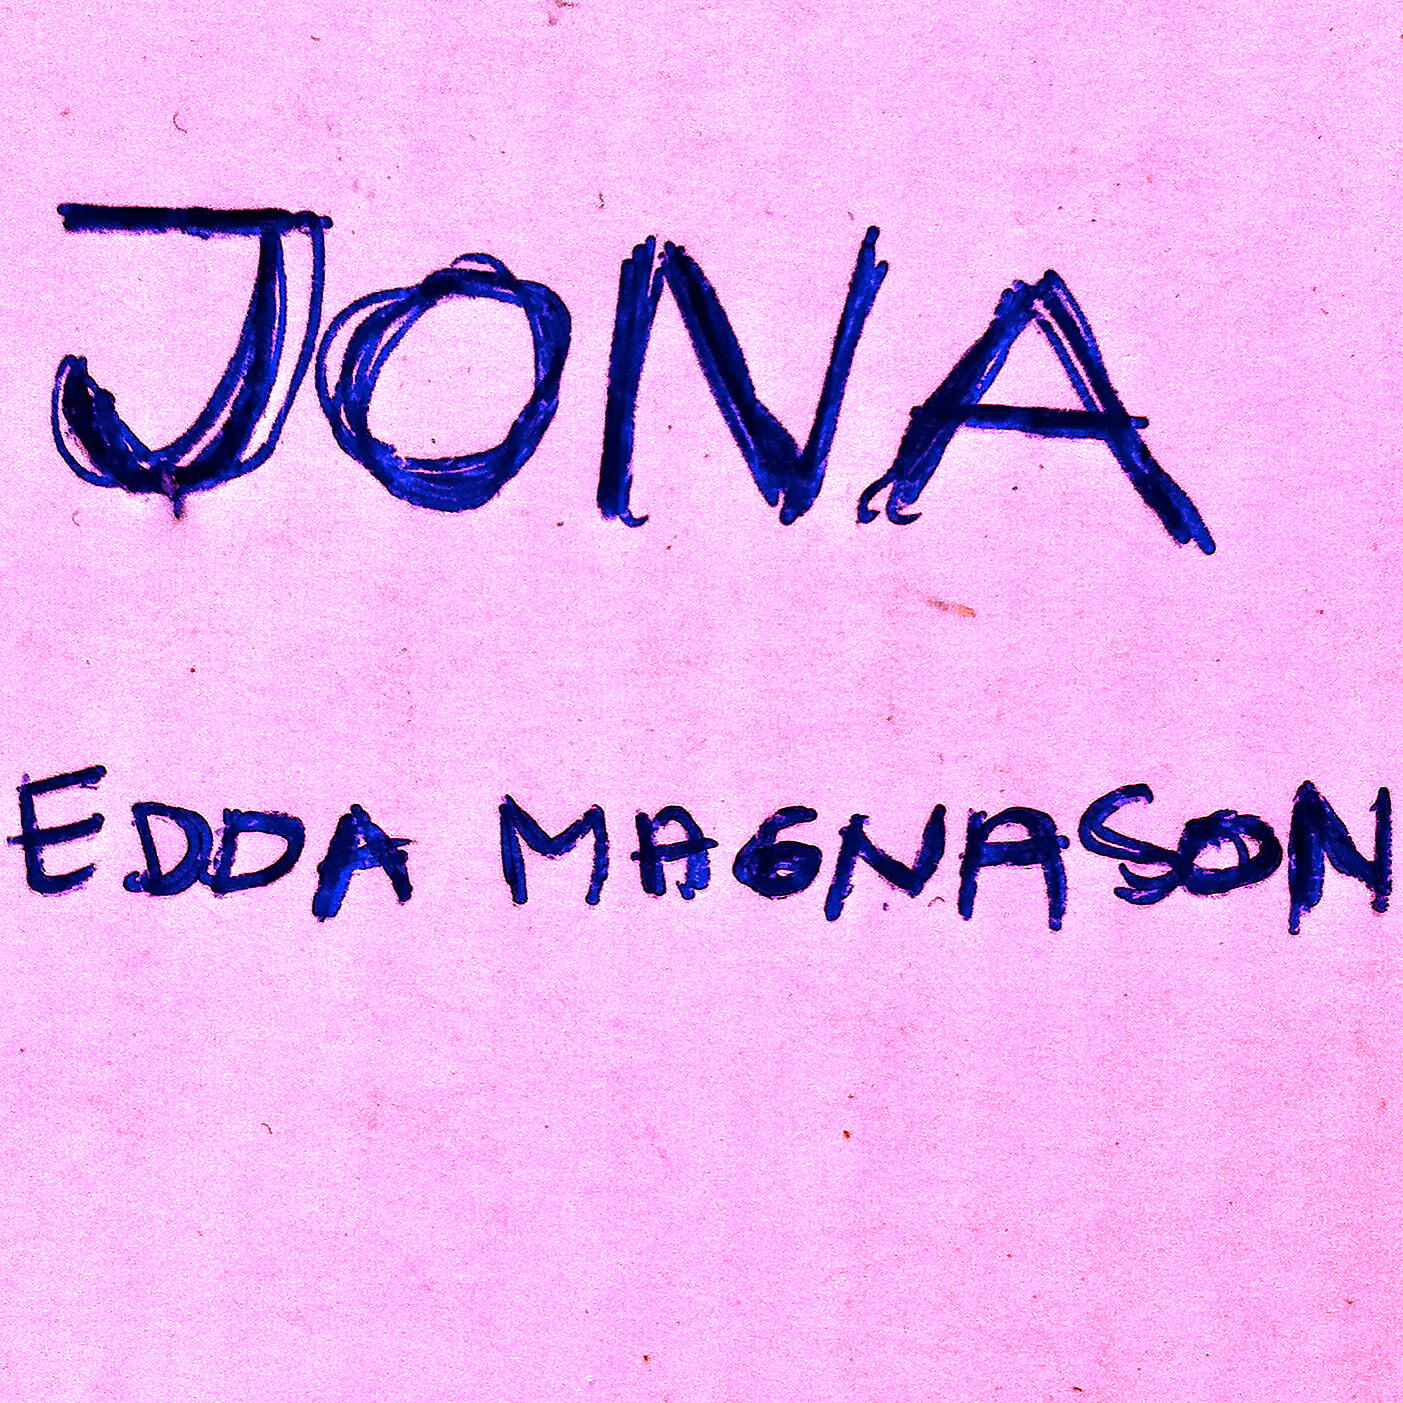 JONA
EDDA MAGNASON